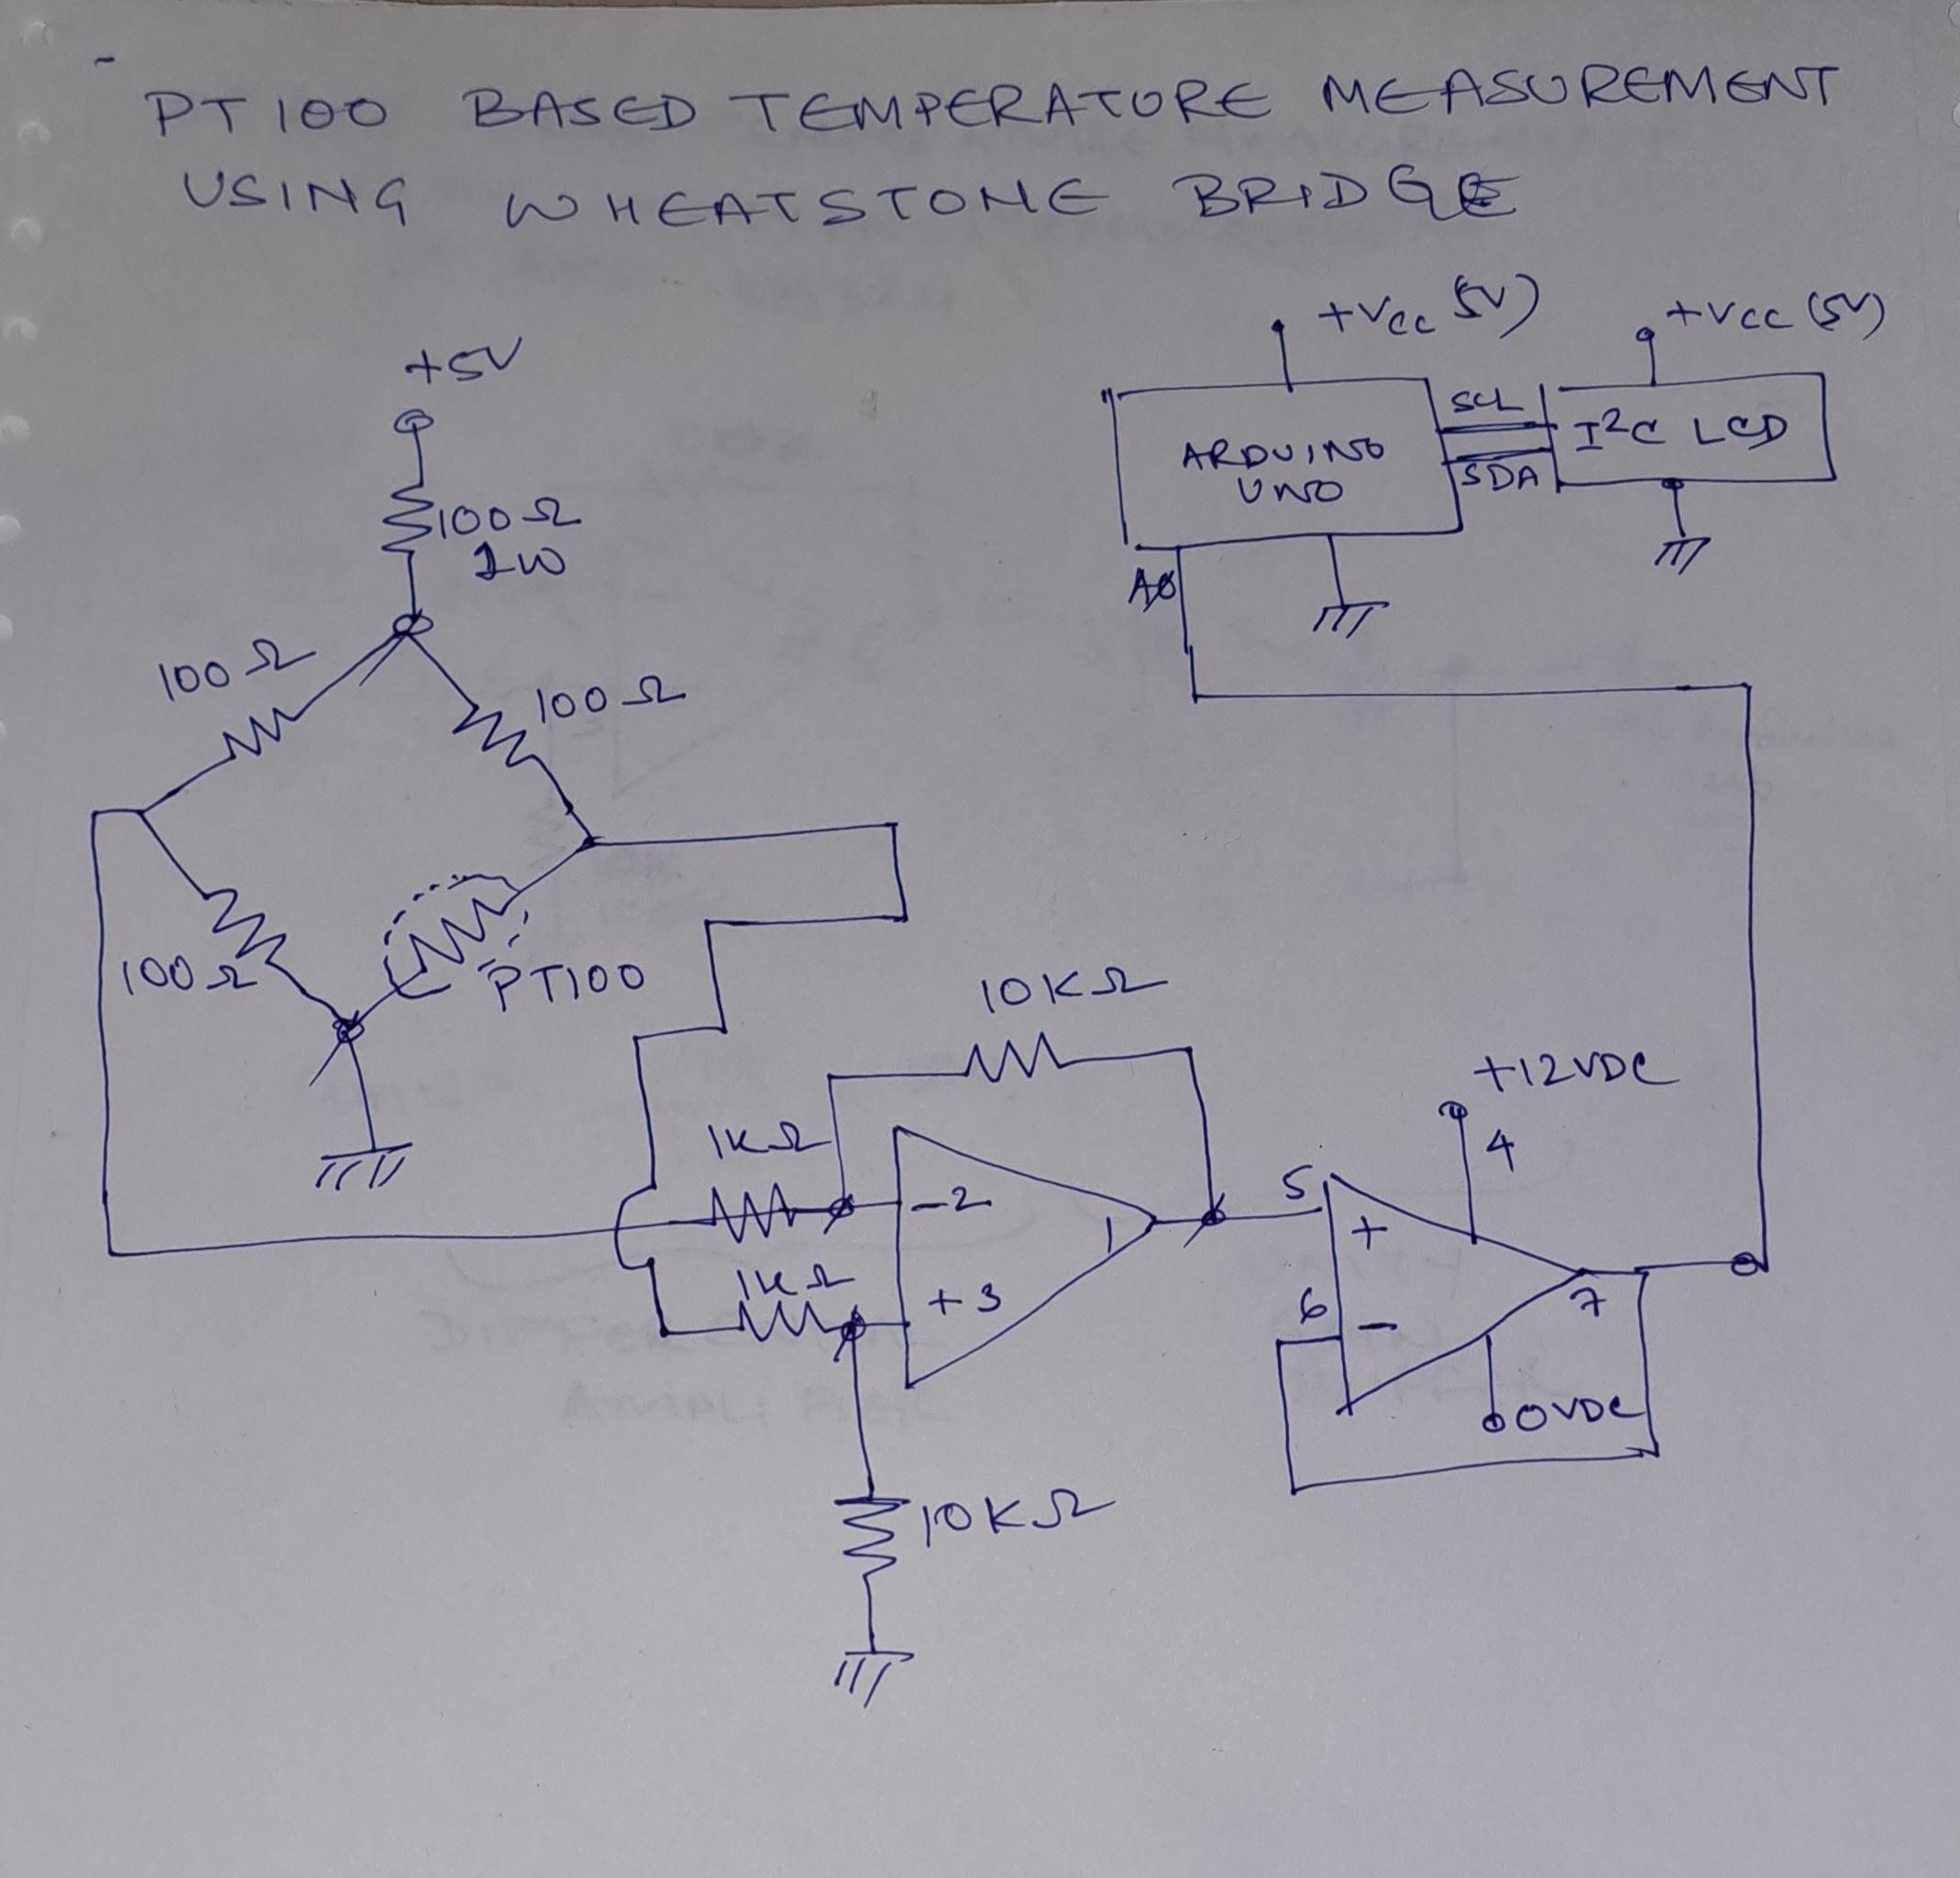 PT100 BASED TEMPERATURE MEASUREMENT
USING WHEATSTONE BRIDGE
+5V
100Ω
1W
100Ω
100Ω
100Ω
PT100
+Vcc (5V)
+Vcc (5V)
ARDUINO
UNO
SCL
SDA
I²C LCD
A0
10KΩ
1KΩ
-2
1
1KΩ
+3
10KΩ
+12VDC
4
5
+
6
-
7
0VDC